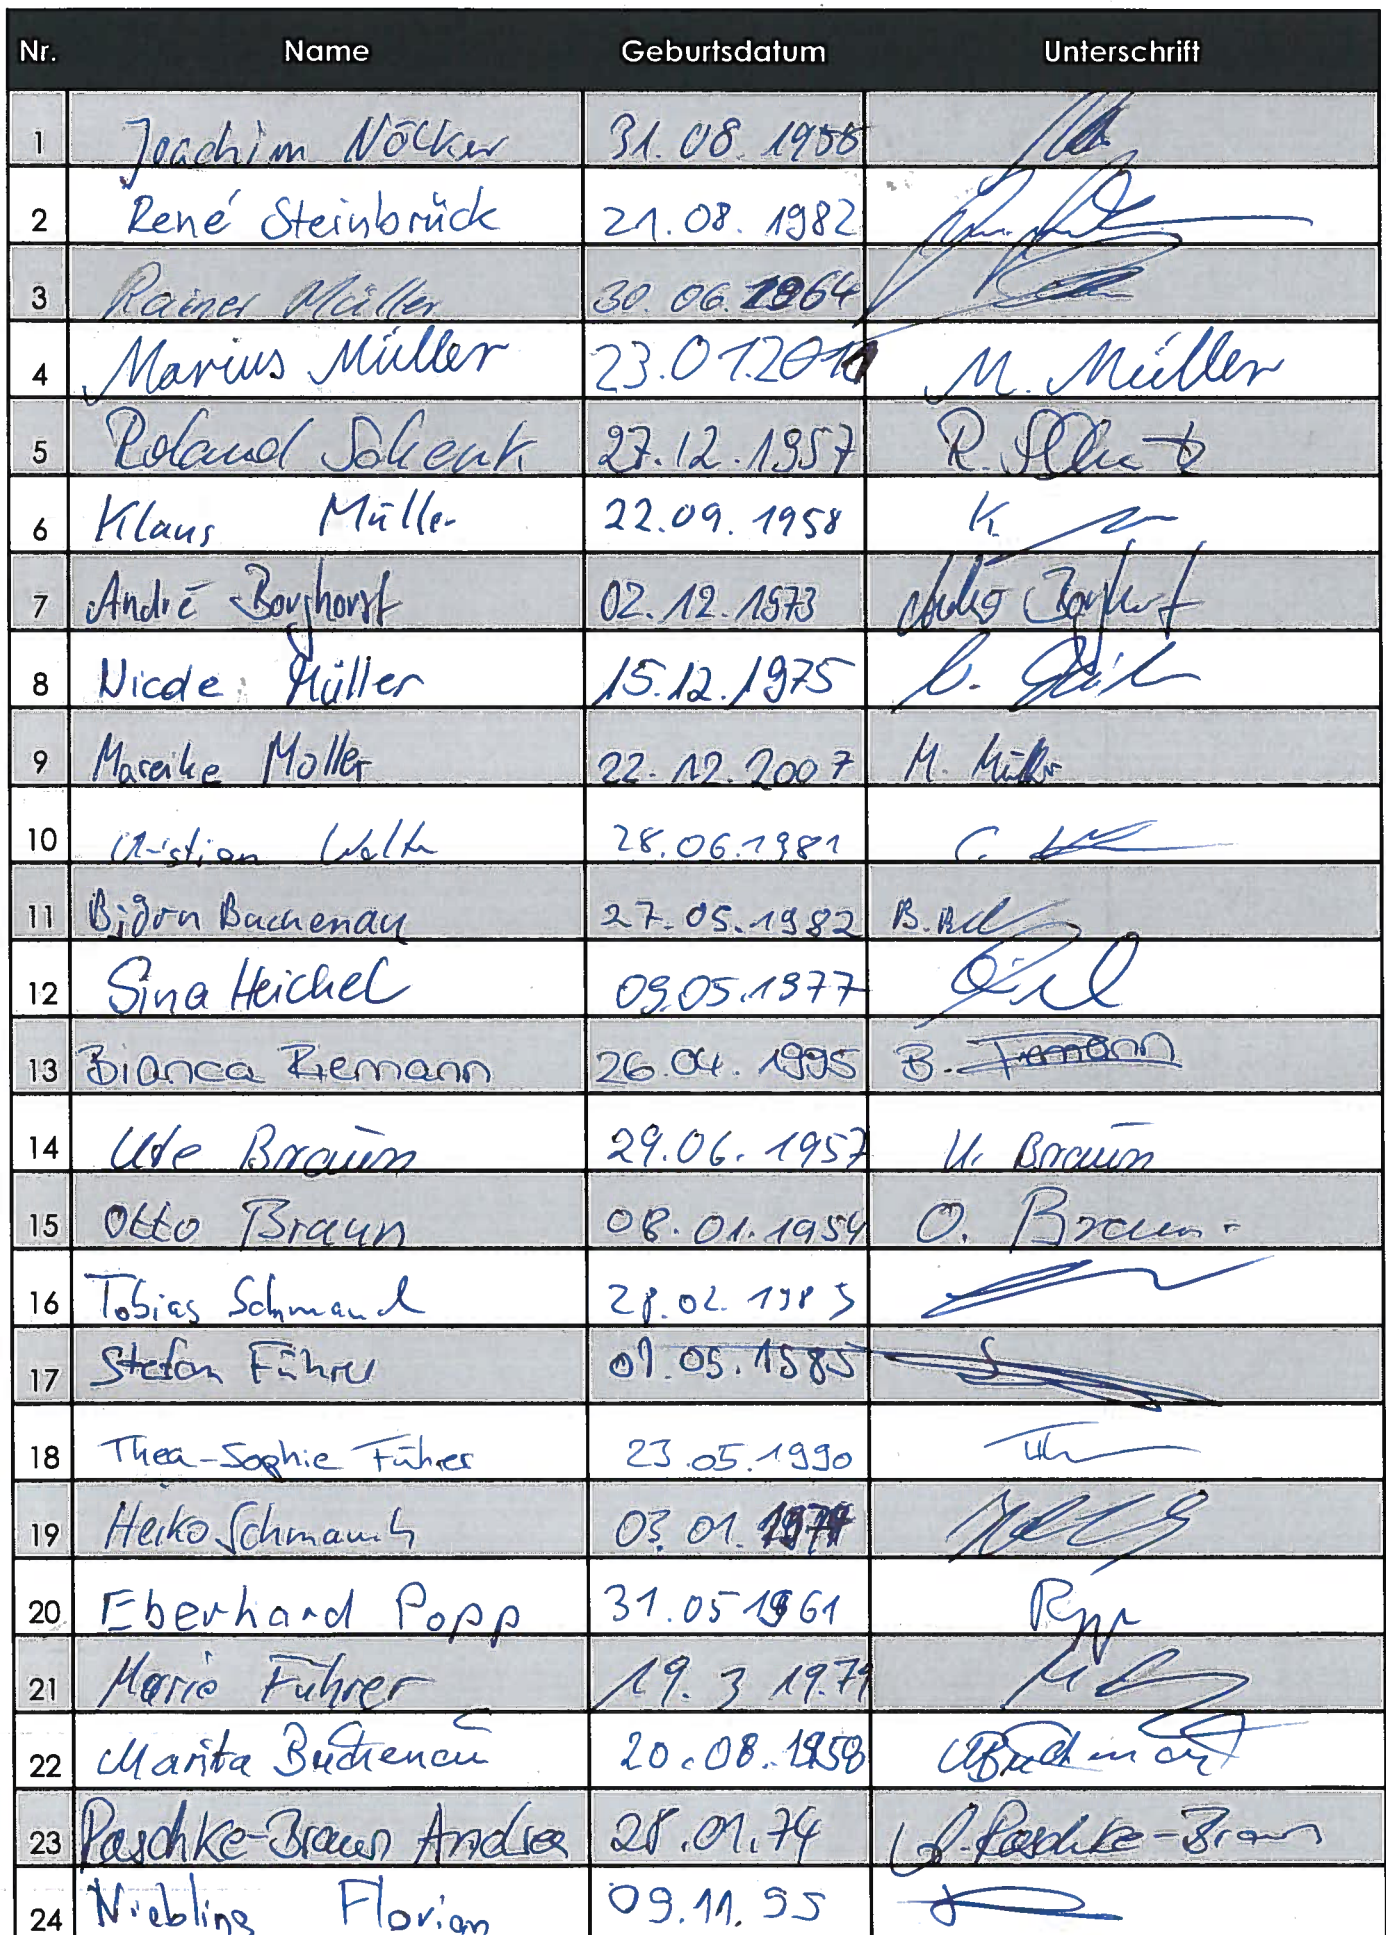 Nr. Name Geburtsdatum Unterschrift
1 Joachim Nölker 31.08.1958
2 René Steinbrück 21.08.1982
3 Rainer Müller 30.06.1964
4 Marius Müller 23.01.2011 M. Müller
5 Roland Schenk 27.12.1957 R.
6 Klaus Müller 22.09.1958 K.
7 André Borghorst 02.12.1973 André Borghorst
8 Nicole Müller 15.12.1975
9 Mareike Möller 22.12.2007 M.
10 Christian Walter 28.06.1981 C.
11 Björn Buchenau 27.05.1982 B.
12 Sina Heichel 09.05.1977
13 Bianca Riemann 26.04.1995 B. Riemann
14 Ute Braun 29.06.1957 U. Braun
15 Otto Braun 08.01.1954 O. Braun
16 Tobias 28.02.1985
17 Stefan Führer 01.05.1985
18 Thea-Sophie Führer 23.05.1990
19 Heiko Schmauch 03.01.
20 Eberhard Popp 31.05 1961 Popp
21 Mario Führer 19.3 1979
22 Marita Buchenau 20.08.1958 MBuchenau
23 Paschke-Braun Andrea 28.01.74 A. Paschke-Braun
24 Niebling Florian 09.11.95